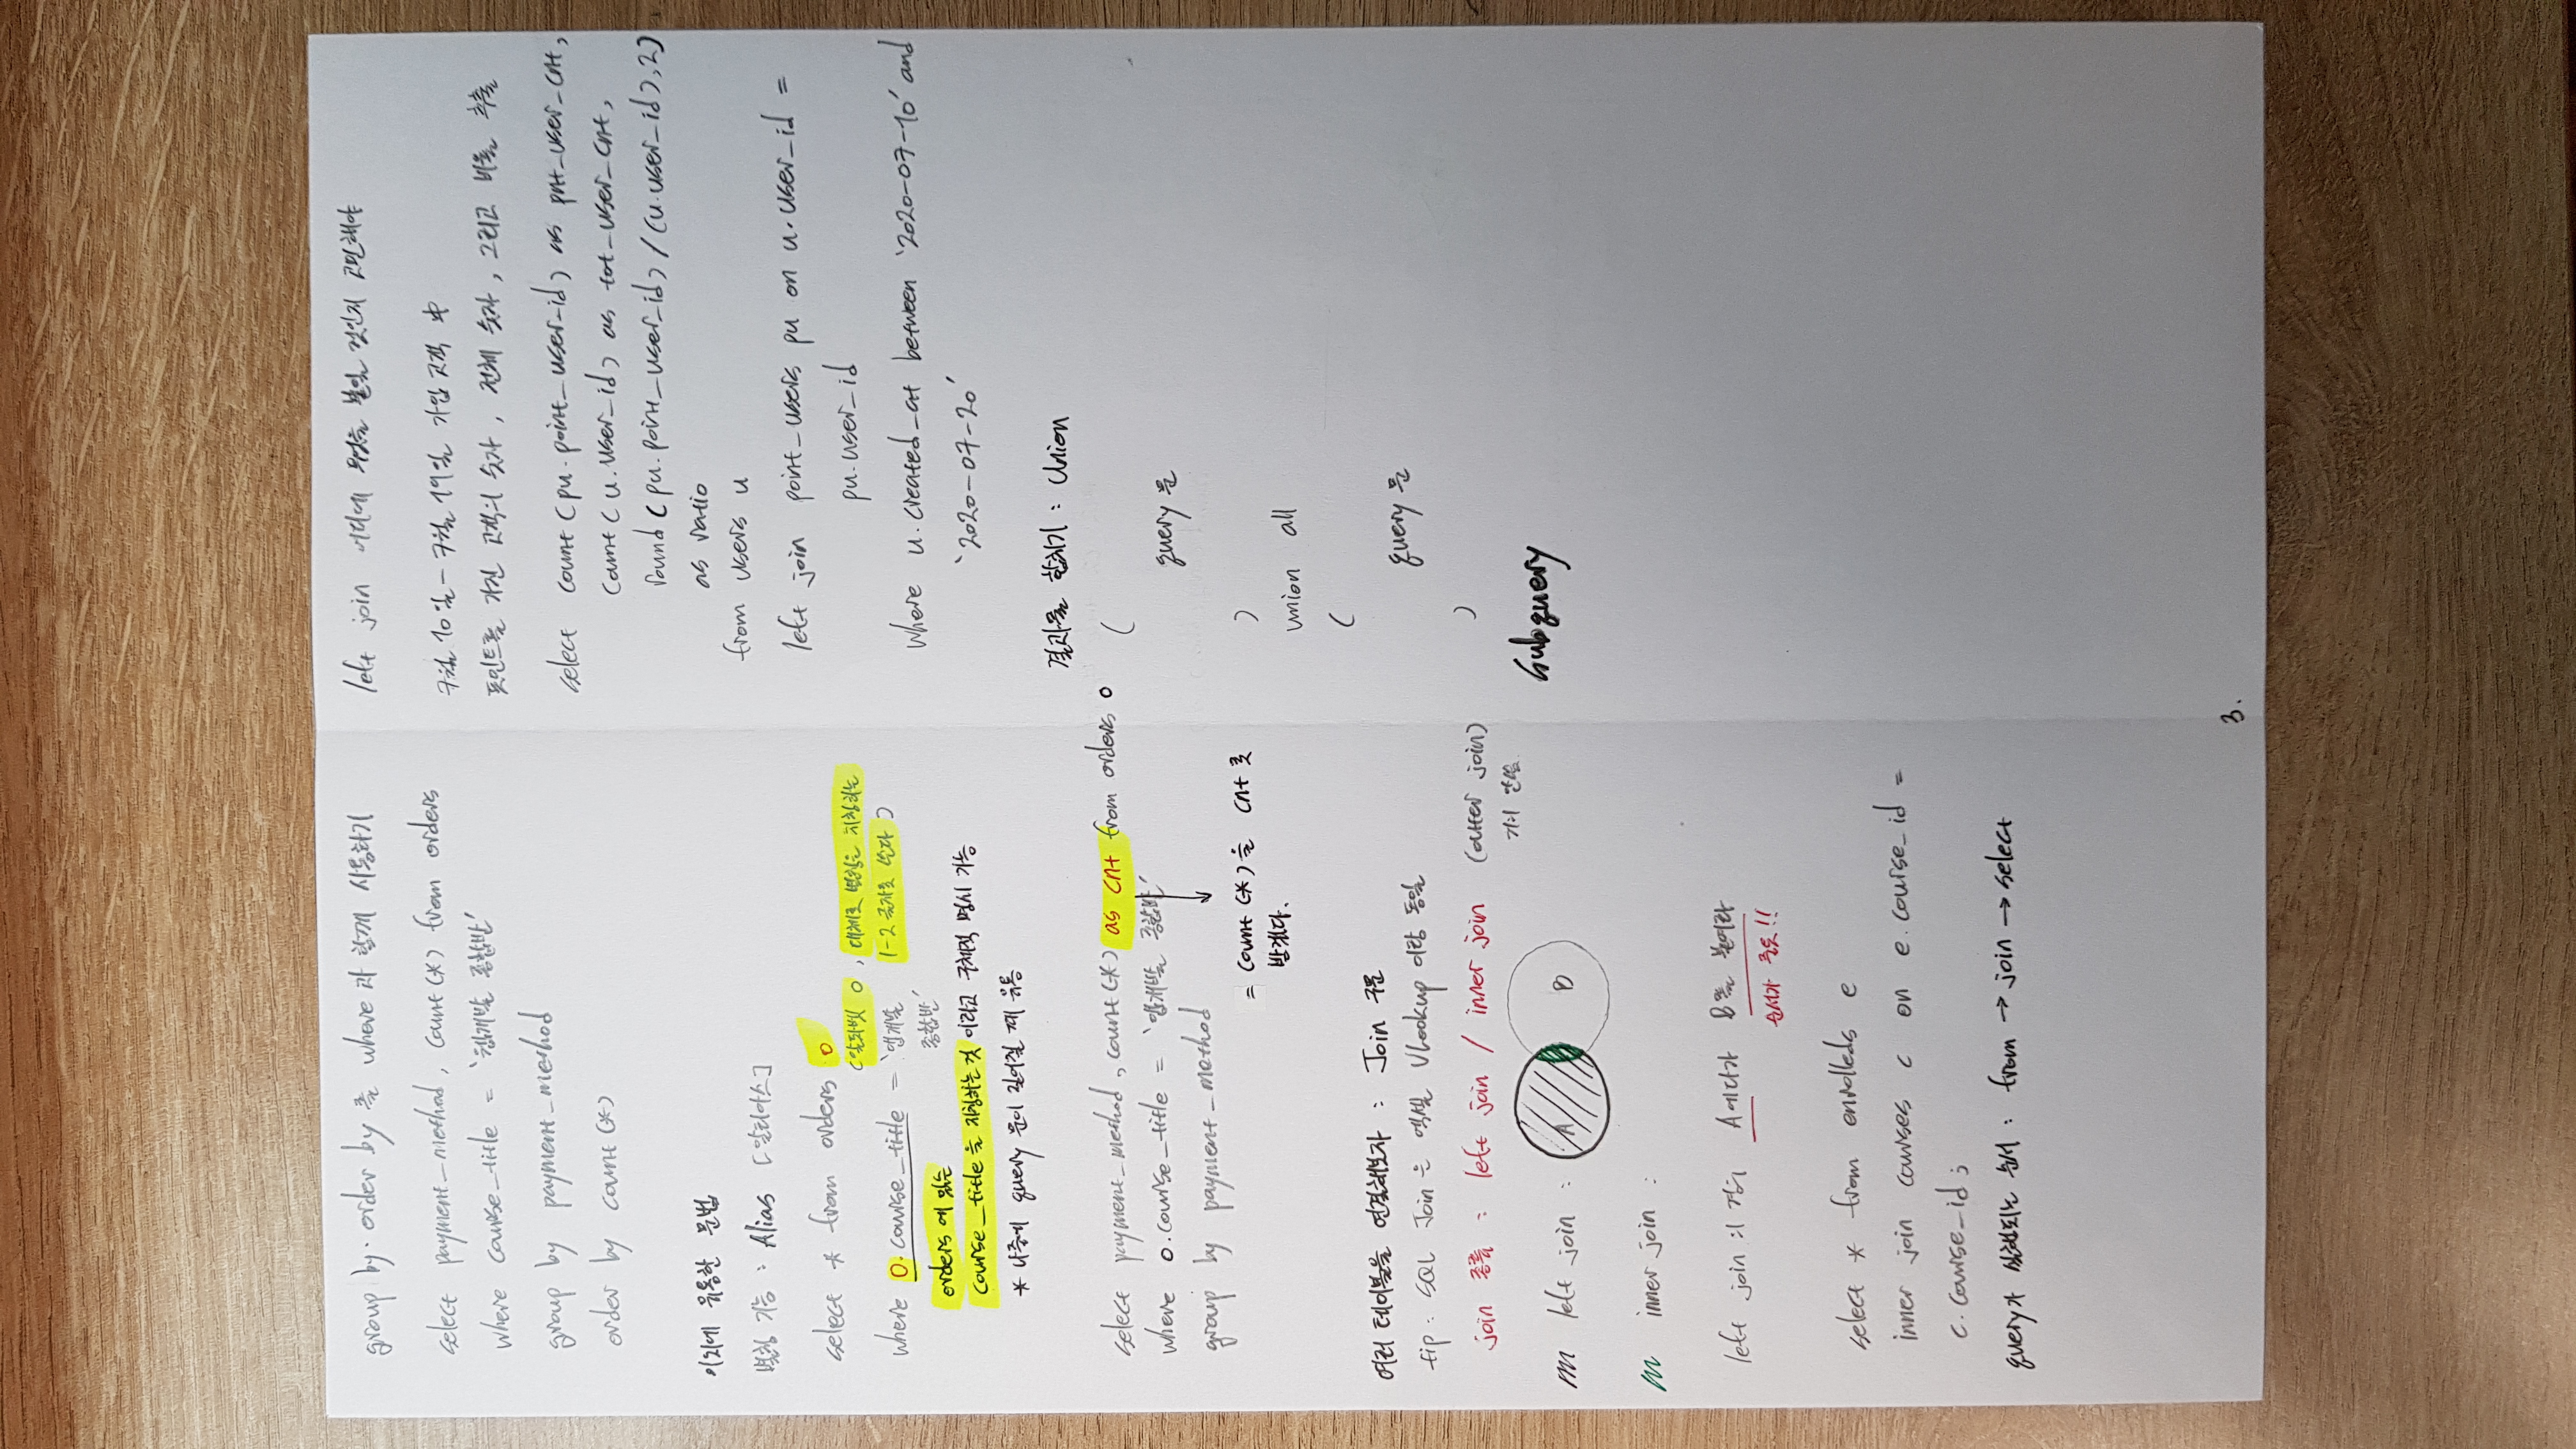 group by · order by 를 where 과 함께 사용하기
select payment_method, count(*) from orders
where course_title = '앱개발 종합반'
group by payment_method
order by count(*)
이외에 유용한 문법
별칭 기능 : Alias [알리아스]
select * from orders o
(알파벳 o, 대체로 별칭은 치환하는
1-2 글자로 쓴다)
where o.course_title = '앱개발
종합반'
orders 에 있는
course_title 을 지칭하는 것 이라고 구체적 명시 가능
* 나중에 query 문이 길어질 때 유용
select payment_method, count(*) as cnt from orders o
where o.course_title = '앱개발 종합반'
group by payment_method
= count(*)을 cnt 로
바꿨다.
여러 테이블을 연결해보자 : Join 구문
tip : SQL Join은 엑셀 Vlookup 이랑 동일
join 종류 : left join / inner join (outter join)
거의 안씀
left join :
A B
inner join :
left join의 경우 A에다가 B를 붙여라
순서가 중요!!
select * from enrolleds e
inner join courses c on e.course_id =
c.course_id;
query가 실행되는 순서 : from → join → select
left join 어디에 무엇을 붙일 것인지 고민해야
7월 10일 - 7월 19일 가입 고객 中
포인트를 가진 고객의 숫자, 전체 숫자, 그리고 비율 추출
select count(pu.point_user_id) as pnt_user_cnt,
count(u.user_id) as tot_user_cnt,
round(pu.point_user_id)/(u.user_id),2)
as ratio
from users u
left join point_users pu on u.user_id =
pu.user_id
where u.created_at between '2020-07-10' and
'2020-07-20'
결과물 합치기 : Union
(
query 문
)
union all
(
query 문
)
Subquery
3.